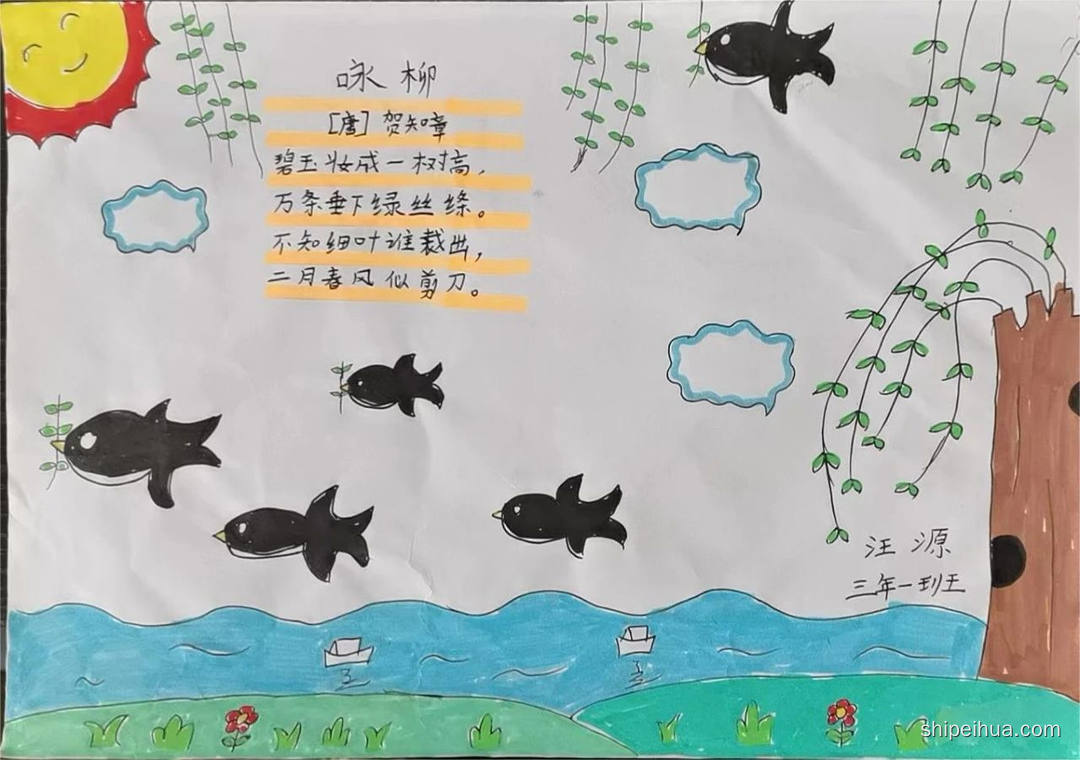 咏柳
[唐] 贺知章
碧玉妆成一树高，
万条垂下绿丝绦。
不知细叶谁裁出，
二月春风似剪刀。
汪源
三年一班
shipeihua.com